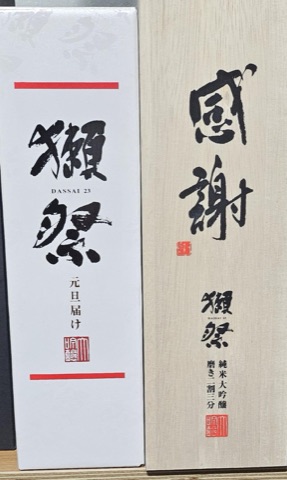 獺祭
DASSAI 23
元旦届け
感謝
獺祭
純米大吟醸
磨き二割三分